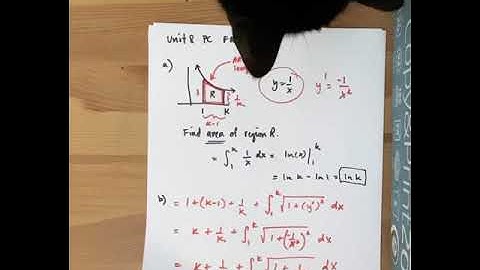 Unit 8 PC F
a)
R
1
1/k
1 k
k-1
y = 1/x
y' = -1/x²
Find area of region R.
= ∫₁ᵏ 1/x dx = ln(x) |₁ᵏ
= ln k - ln 1 = ln k
b) = 1 + (k-1) + 1/k + ∫₁ᵏ √(1 + (y')²) dx
= k + 1/k + ∫₁ᵏ √(1 + (-1/x²)²) dx
= k + 1/k + ∫₁ᵏ √(1 + 1 dx
copy&print